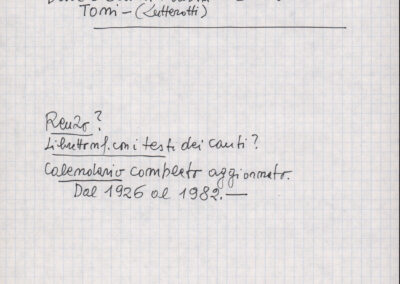 Tomi - (Lutterotti)
Renzo?
Libretto ms. con i testi dei canti?
Calendario completo aggiornato.
Dal 1926 al 1982. —